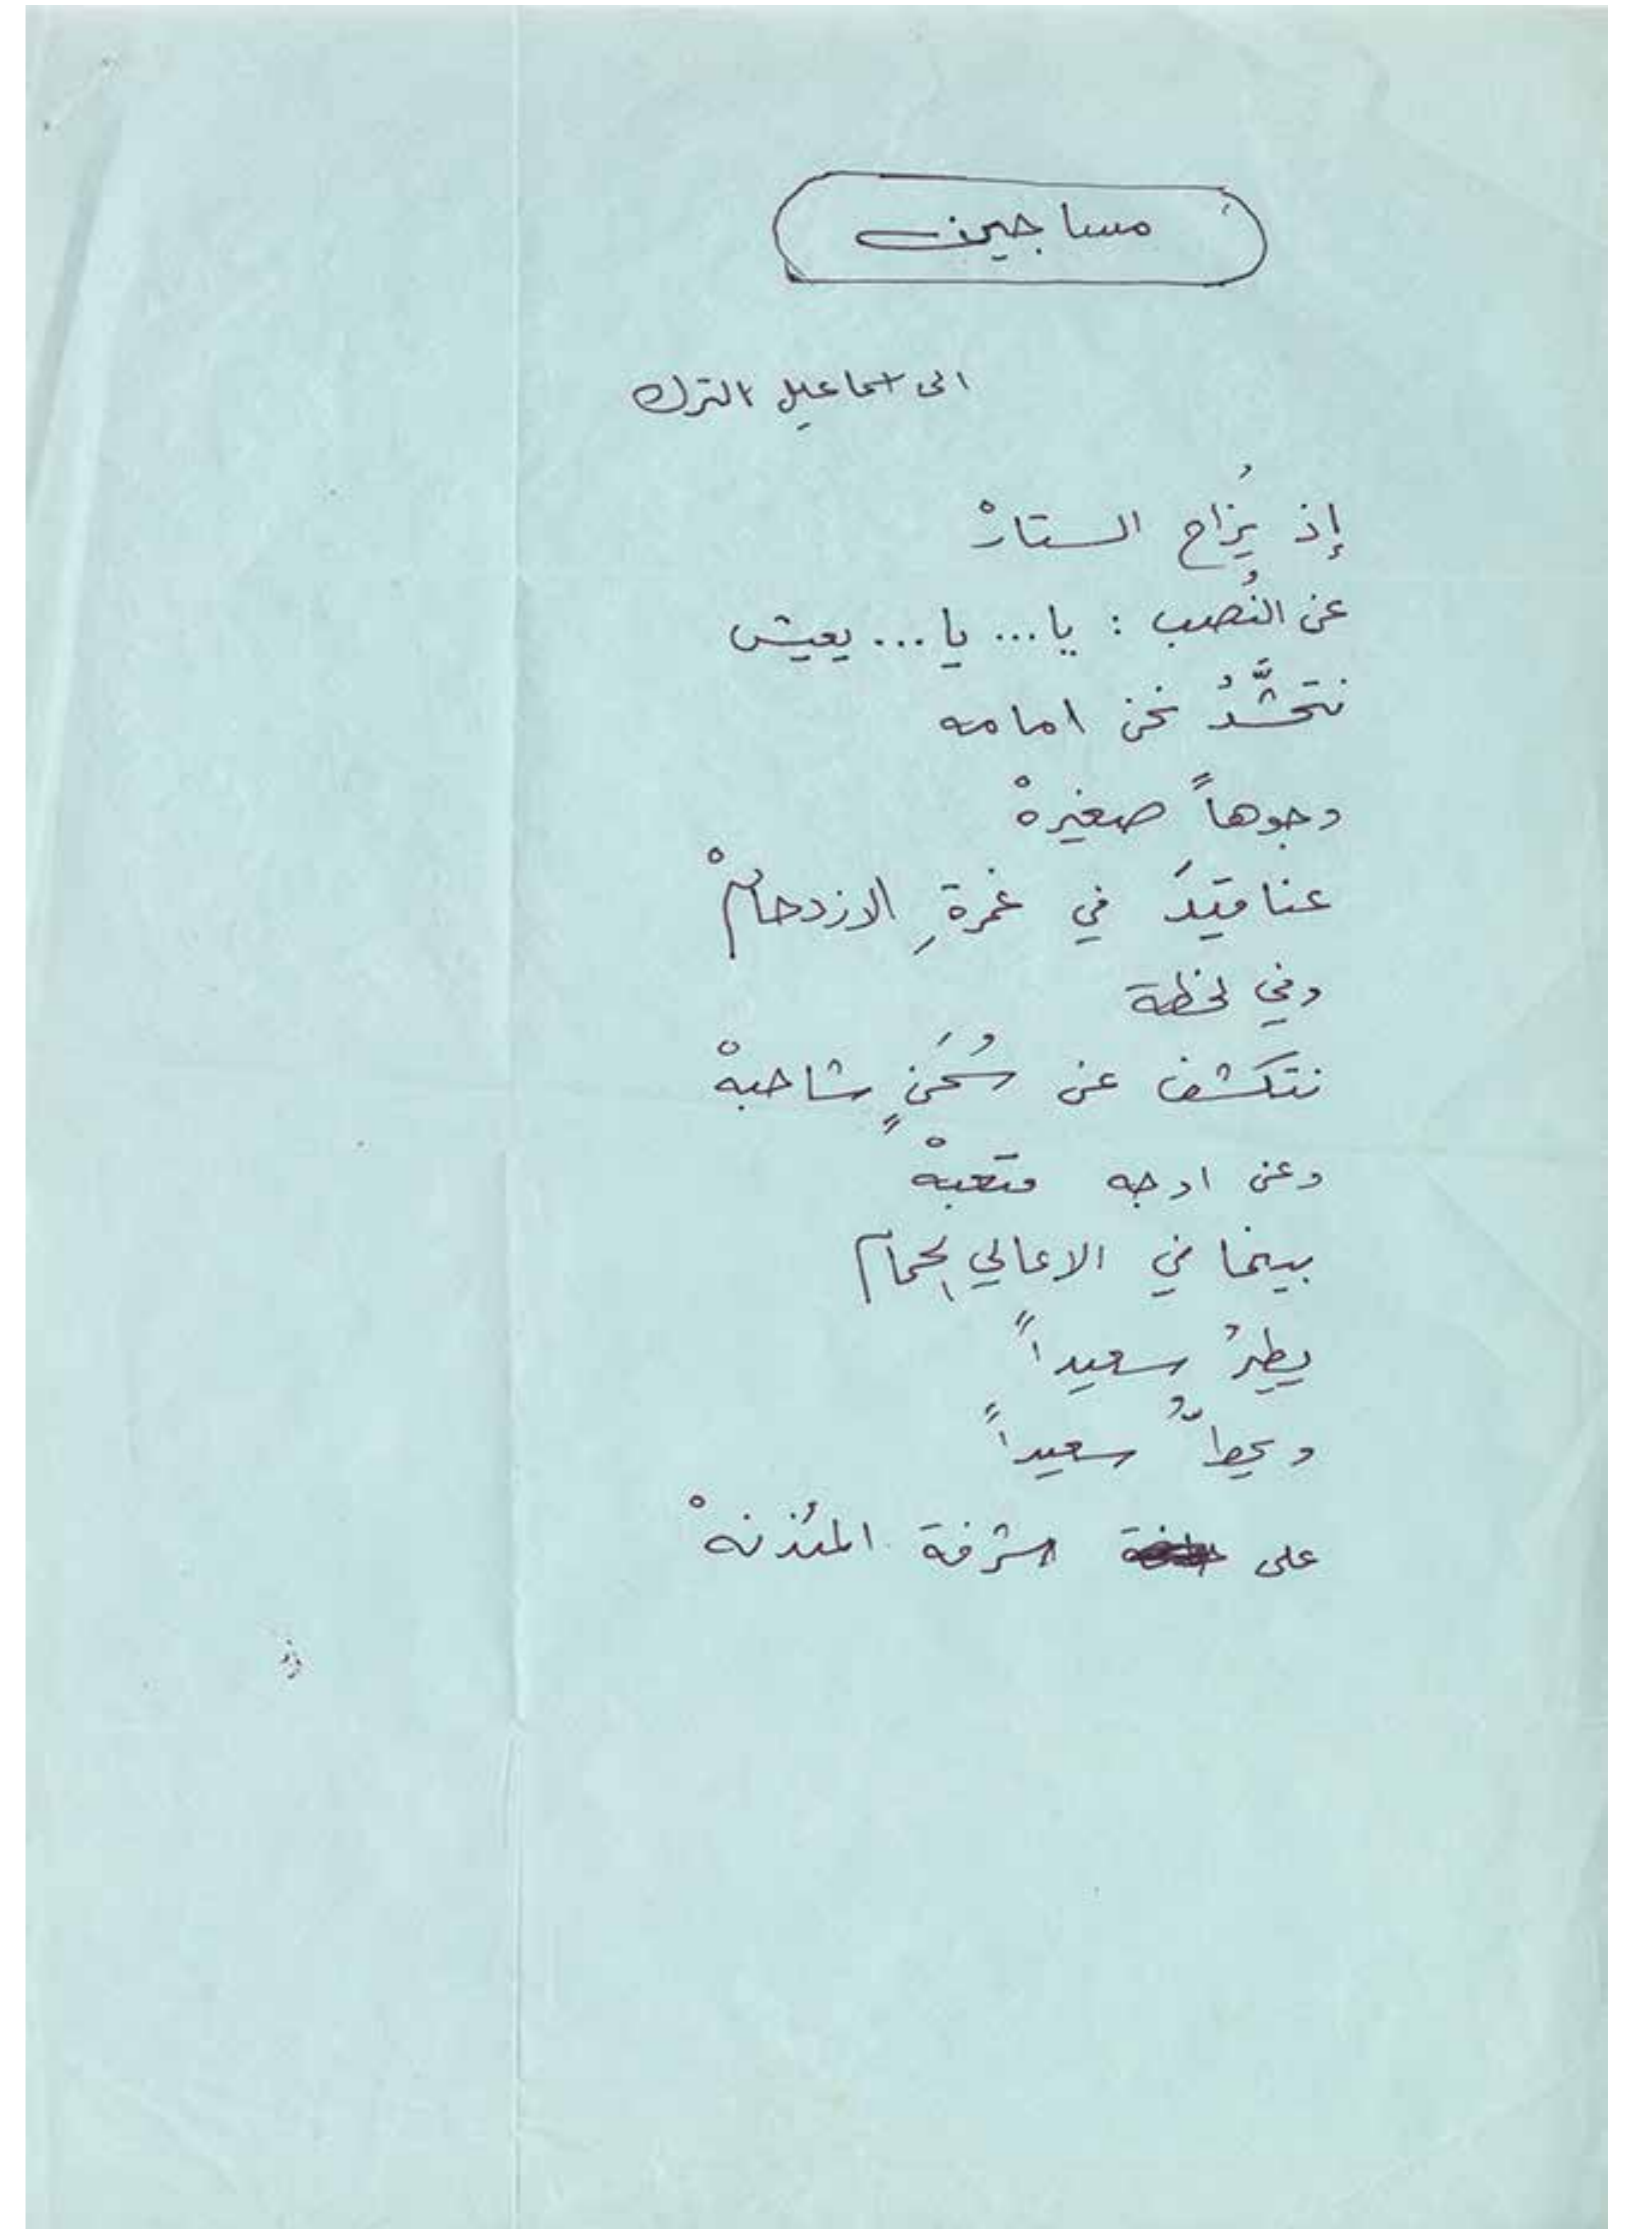 مساجين
الى اسماعيل الترك
إذ يُزاح الستارْ
عن النُصب : يا... يا... يعيش
نتحشَّدُ نحن امامه
وجوهاً صغيرهْ
عناقيدَ في غمرةِ الازدحامْ
وفي لحظة
نتكشف عن سُحَنٍ شاحبهْ
وعن اوجه متعبهْ
بينما في الاعالي الحمام
يطيرُ سعيداً
ويحطُّ سعيداً
على شرفة المئذنهْ